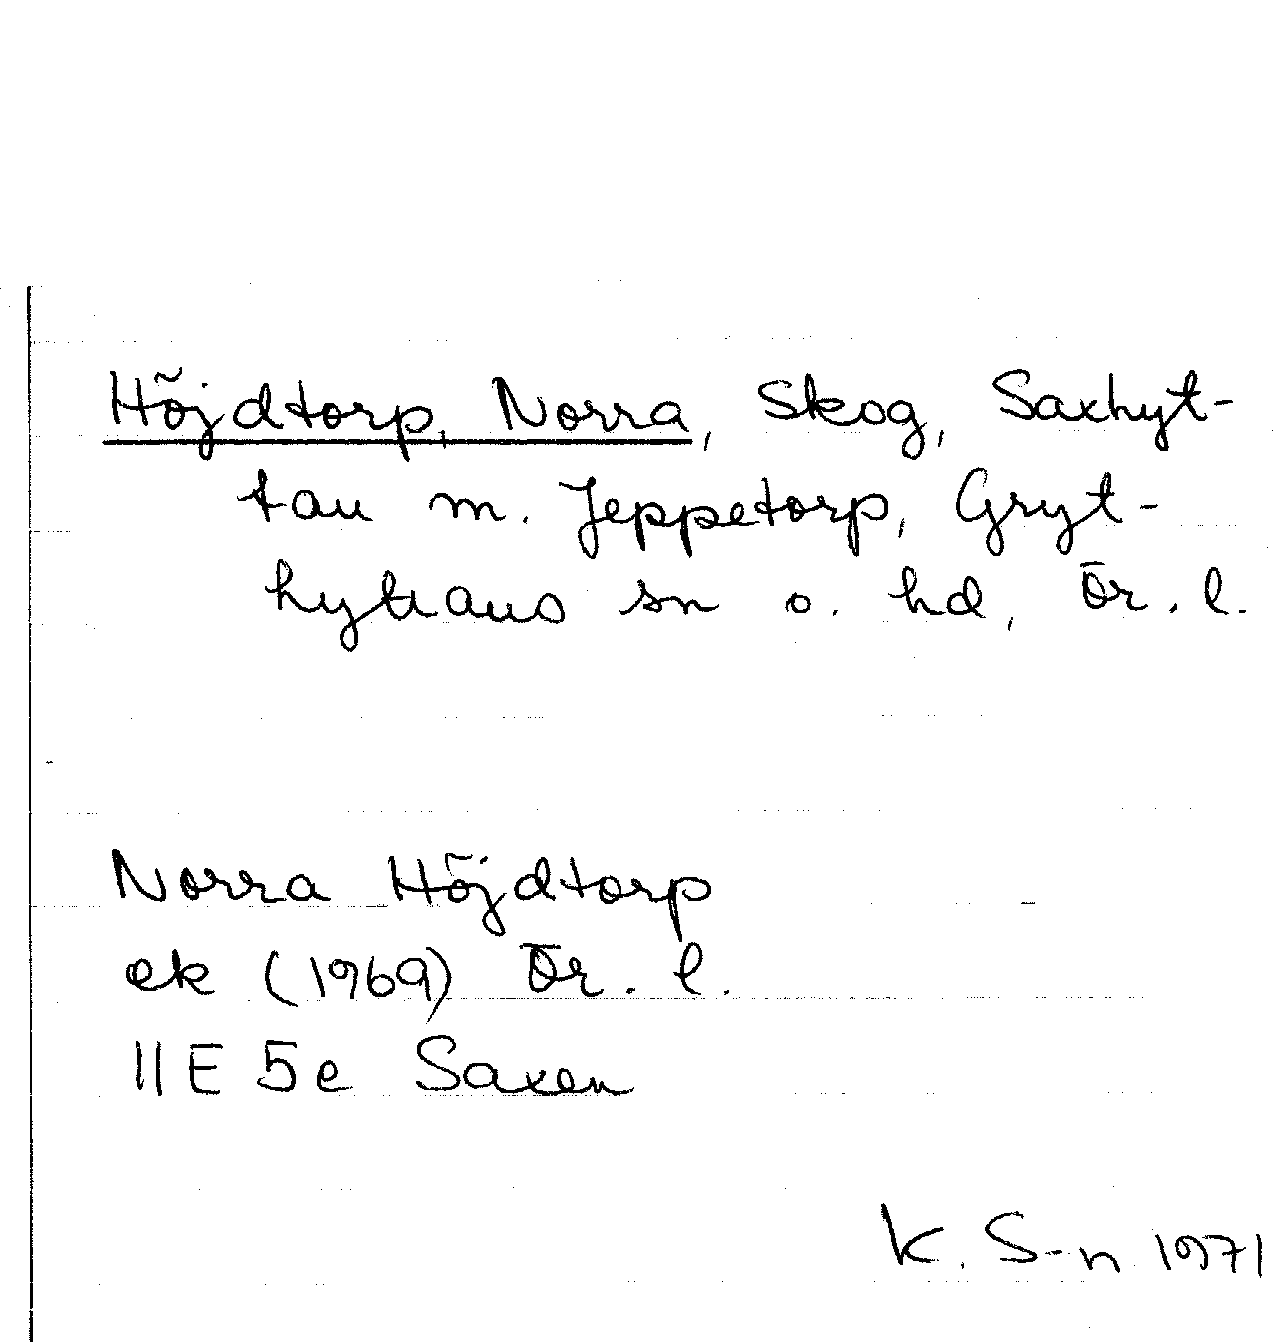 Höjdtorp, Norra, Skog, Saxhyt-
tan m. Jeppetorp, Gryt-
hyttans sn o. hd, Ör. l.
Norra Höjdtorp
ek (1969) Ör. l.
11E 5e Saxen
K. S-n 1971